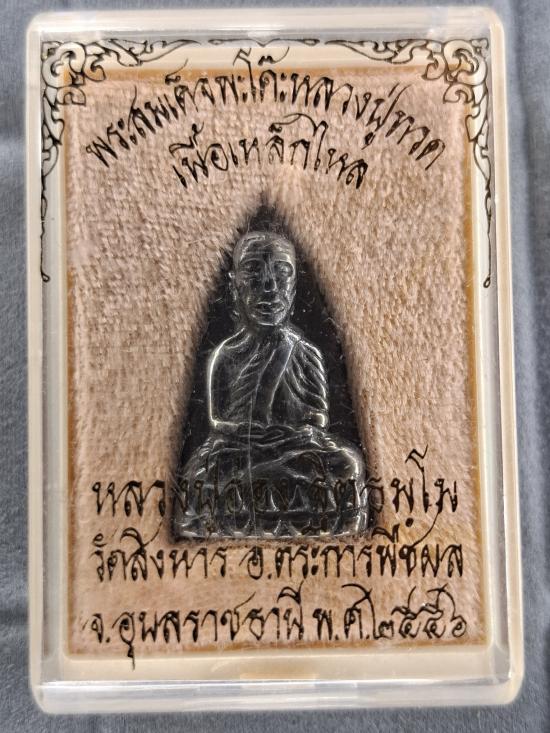 พระสมเด็จพะโค๊ะหลวงปู่ทวด
เนื้อเหล็กไหล
หลวงปู่
วัดสิงหาร อ.ตระการพืชผล
จ.อุบลราชธานี พ.ศ.๒๕๕๖